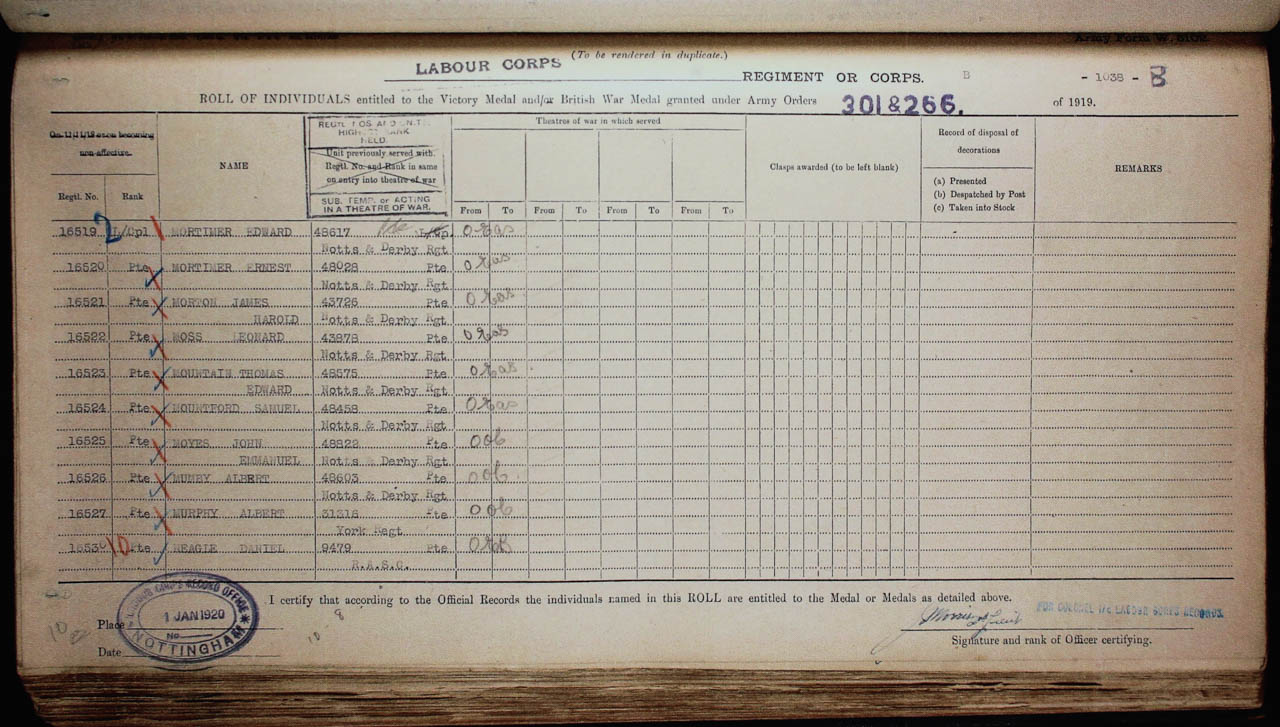 (To be rendered in duplicate.)
LABOUR CORPS REGIMENT OR CORPS. B - 1038 - B
ROLL OF INDIVIDUALS entitled to the Victory Medal and/or British War Medal granted under Army Orders 301 & 266. of 1919.
On 11/11/18 or on becoming
non-effective.
Regtl. No. Rank
NAME
REGTL NOS AND UNITS
HIGHEST RANK
HELD.
Unit previously served with.
Regtl. No. and Rank in same
on entry into theatre of war
SUB. TEMP. or ACTING
IN A THEATRE OF WAR.
Theatres of war in which served
From To From To From To From To
Clasps awarded (to be left blank)
Record of disposal of
decorations
(a) Presented
(b) Despatched by Post
(c) Taken into Stock
REMARKS
16519 2 L/Cpl MORTIMER EDWARD 48617 L/Cp.
Notts & Derby Rgt
16520 Pte MORTIMER ERNEST 48028 Pte
Notts & Derby Rgt
16521 Pte MORTON JAMES 43726 Pte
HAROLD Notts & Derby Rgt
16522 Pte MOSS LEONARD 43878 Pte
Notts & Derby Rgt
16523 Pte MOUNTAIN THOMAS 48575 Pte
EDWARD Notts & Derby Rgt
16524 Pte MOUNTFORD SAMUEL 48458 Pte
Notts & Derby Rgt
16525 Pte MOYES JOHN 48822 Pte
EMMANUEL Notts & Derby Rgt
16526 Pte MUMBY ALBERT 48603 Pte
Notts & Derby Rgt
16527 Pte MURPHY ALBERT 31318 Pte
York Regt
10 Pte REAGLE DANIEL 9479 Pte
R.A.S.C.
I certify that according to the Official Records the individuals named in this ROLL are entitled to the Medal or Medals as detailed above.
LABOUR CORPS RECORD OFFICE
1 JAN 1920
No
NOTTINGHAM
Place
Date
10 8
FOR COLONEL I/c LABOUR CORPS RECORDS.
Signature and rank of Officer certifying.